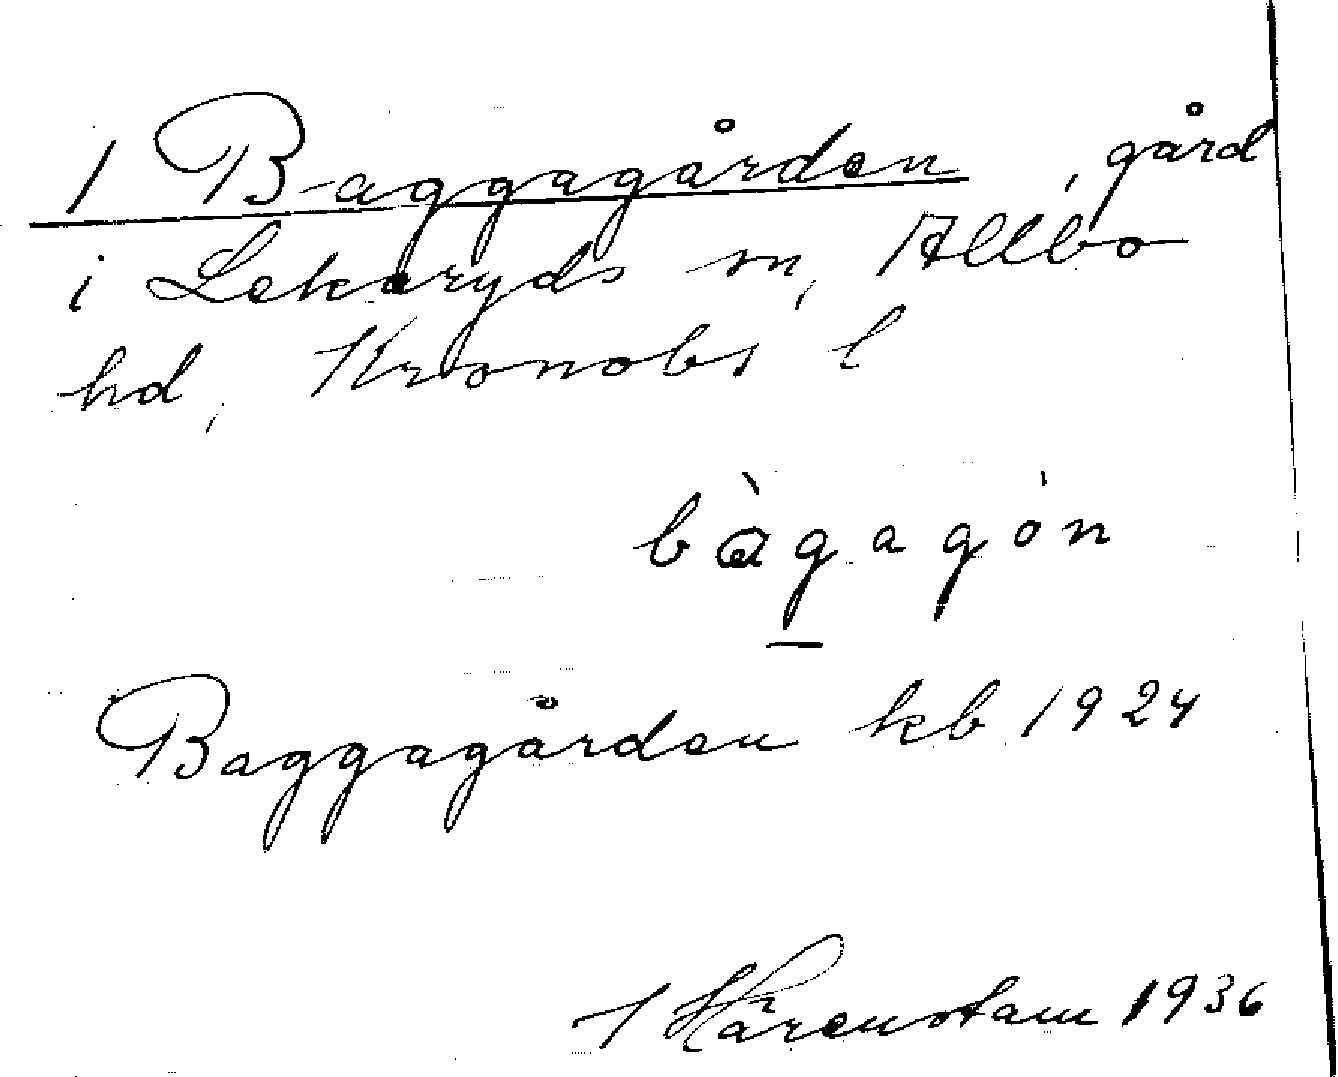 1 Baggagården, gård
i Lekaryds sn, Allbo
hd, Kronobs l
bàgagón
Baggagården kb 1924
Härenstam 1936